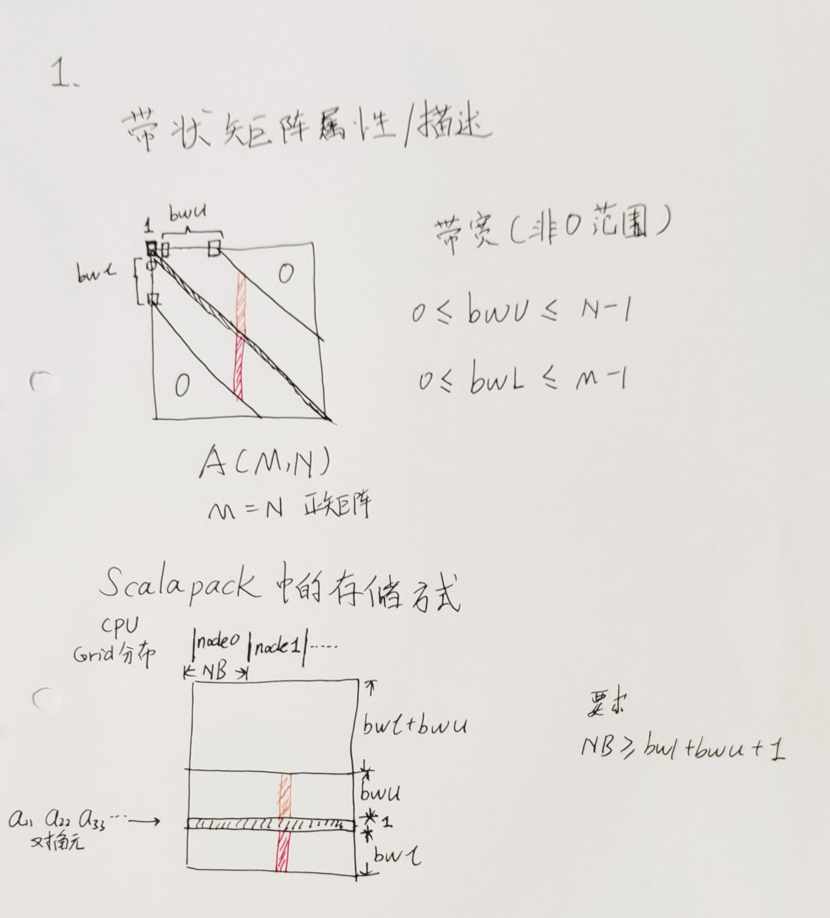 1.
带状矩阵属性/描述
1 bwu
bwl
0
0
A(M,N)
M=N 正矩阵
带宽(非0范围)
0≤bwU≤N-1
0≤bwL≤M-1
Scalapack 中的存储方式
CPU
Grid分布
|node0|node1|·····
NB
bwl+bwu
bwu
1
bwl
a₁₁ a₂₂ a₃₃ ···
对角元
要求
NB≥bwl+bwu+1